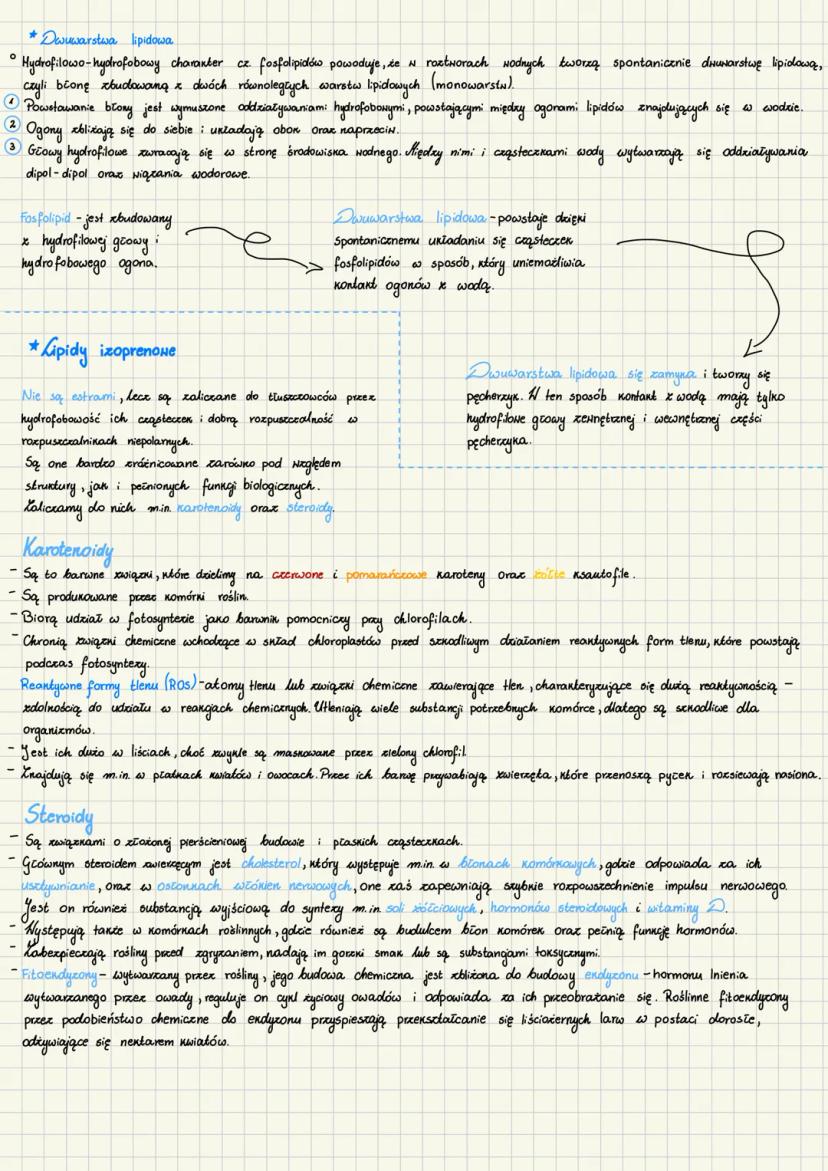 * Dwuwarstwa lipidowa
° Hydrofilowo-hydrofobowy charakter cz. fosfolipidów powoduje, że w roztworach wodnych tworzą spontanicznie dwuwarstwę lipidową,
czyli błonę zbudowaną z dwóch równoległych warstw lipidowych (monowarstw).
1 Powstawanie błony jest wymuszone oddziaływaniami hydrofobowymi, powstającymi między ogonami lipidów znajdujących się w wodzie.
2 Ogony zbliżają się do siebie i układają obok oraz naprzeciw.
3 Głowy hydrofilowe zwracają się w stronę środowiska wodnego. Między nimi i cząsteczkami wody wytwarzają się oddziaływania
dipol-dipol oraz wiązania wodorowe.
Fosfolipid - jest zbudowany
z hydrofilowej głowy i
hydrofobowego ogona.
Dwuwarstwa lipidowa - powstaje dzięki
spontanicznemu układaniu się cząsteczek
fosfolipidów w sposób, który uniemożliwia
kontakt ogonów z wodą.
Dwuwarstwa lipidowa się zamyka i tworzy się
pęcherzyk. W ten sposób kontakt z wodą mają tylko
hydrofilowe głowy zewnętrznej i wewnętrznej części
pęcherzyka.
* Lipidy izoprenowe
Nie są estrami, lecz są zaliczane do tłuszczowców przez
hydrofobowość ich cząsteczek i dobrą rozpuszczalność w
rozpuszczalnikach niepolarnych.
Są one bardzo zróżnicowane zarówno pod względem
struktury, jak i pełnionych funkcji biologicznych.
Zaliczamy do nich m.in. karotenoidy oraz steroidy.
Karotenoidy
- Są to barwne związki, które dzielimy na czerwone i pomarańczowe karoteny oraz żółte ksantofile.
- Są produkowane przez komórki roślin.
- Biorą udział w fotosyntezie jako barwnik pomocniczy przy chlorofilach.
- Chronią związki chemiczne wchodzące w skład chloroplastów przed szkodliwym działaniem reaktywnych form tlenu, które powstają
podczas fotosyntezy.
Reaktywne formy tlenu (ROS) - atomy tlenu lub związki chemiczne zawierające tlen, charakteryzujące się dużą reaktywnością –
zdolnością do udziału w reakcjach chemicznych. Utleniają wiele substancji potrzebnych komórce, dlatego są szkodliwe dla
organizmów.
- Jest ich dużo w liściach, choć zwykle są maskowane przez zielony chlorofil.
- Znajdują się m.in. w płatkach kwiatów i owocach. Przez ich barwę przywabiają zwierzęta, które przenoszą pyłek i rozsiewają nasiona.
Steroidy
- Są związkami o złożonej pierścieniowej budowie i płaskich cząsteczkach.
- Głównym steroidem zwierzęcym jest cholesterol, który występuje m.in. w błonach komórkowych, gdzie odpowiada za ich
usztywnianie, oraz w osłonkach włókien nerwowych, one zaś zapewniają szybkie rozpowszechnienie impulsu nerwowego.
Jest on również substancją wyjściową do syntezy m.in. soli żółciowych, hormonów steroidowych i witaminy D.
- Występują także w komórkach roślinnych, gdzie również są budulcem błon komórek oraz pełnią funkcję hormonów.
- Zabezpieczają rośliny przed zgryzaniem, nadają im gorzki smak lub są substancjami toksycznymi.
- Fitoekdyzony - wytwarzany przez rośliny, jego budowa chemiczna jest zbliżona do budowy ekdyzonu - hormonu linienia
wytwarzanego przez owady, reguluje on cykl życiowy owadów i odpowiada za ich przeobrażanie się. Roślinne fitoekdyzony
przez podobieństwo chemiczne do ekdyzonu przyspieszają przekształcanie się liściożernych larw w postaci dorosłe,
odżywiające się nektarem kwiatów.